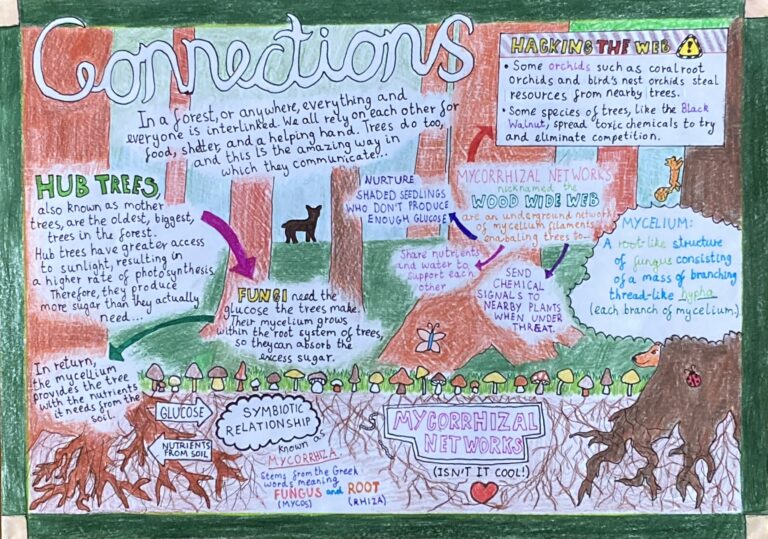 Connections
In a forest, or anywhere, everything and
everyone is interlinked. We all rely on each other for
food, shelter, and a helping hand. Trees do too,
and this is the amazing way in
which they communicate...
HACKING THE WEB
• Some orchids such as coralroot
orchids and bird's nest orchids steal
resources from nearby trees.
• Some species of trees, like the Black
Walnut, spread toxic chemicals to try
and eliminate competition.
HUB TREES,
also known as mother
trees, are the oldest, biggest,
trees in the forest.
Hub trees have greater access
to sunlight, resulting in
a higher rate of photosynthesis.
Therefore, they produce
more sugar than they actually
need...
FUNGI need the
glucose the trees make.
Their mycelium grows
within the root system of trees,
so they can absorb the
excess sugar.
In return,
the mycellium
provides the tree
with the nutrients
it needs from the
soil.
MYCORRHIZAL NETWORKS
nicknamed the
WOOD WIDE WEB
are an underground network
of mycelium filaments
enabaling trees to...
NURTURE
SHADED SEEDLINGS
WHO DON'T PRODUCE
ENOUGH GLUCOSE
Share nutrients
and water to
support each
other
SEND
CHEMICAL
SIGNALS TO
NEARBY PLANTS
WHEN UNDER
THREAT.
MYCELIUM:
A root-like structure
of fungus consisting
of a mass of branching
thread-like hypha
(each branch of mycelium.)
GLUCOSE
NUTRIENTS
FROM SOIL
SYMBIOTIC
RELATIONSHIP
known as
MYCORRHIZA.
Stems from the Greek
words meaning
FUNGUS and ROOT
(MYCOS) (RHIZA)
MYCORRHIZAL
NETWORKS
(ISN'T IT COOL!)